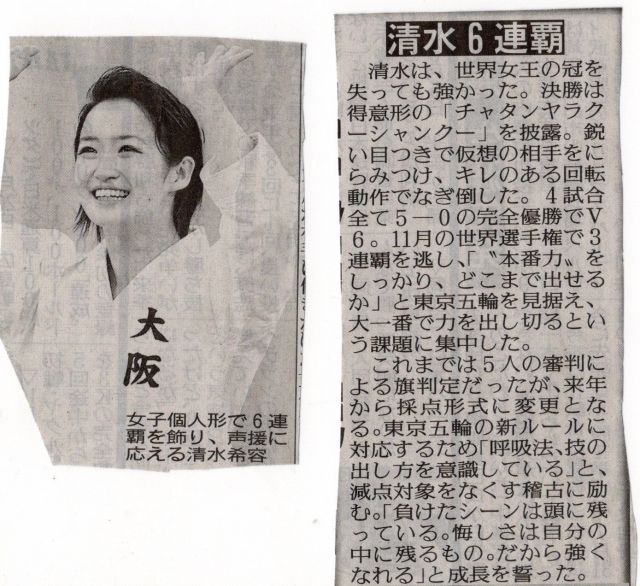 大
阪
女子個人形で6連
覇を飾り、声援に
応える清水希容
清水6連覇
清水は、世界女王の冠を
失っても強かった。決勝は
得意形の「チャタンヤラク
ーシャンクー」を披露。鋭
い目つきで仮想の相手をに
らみつけ、キレのある回転
動作でなぎ倒した。4試合
全て5―0の完全優勝でV
6。11月の世界選手権で3
連覇を逃し、「〝本番力〟を
しっかり、どこまで出せる
か」と東京五輪を見据え、
大一番で力を出し切るとい
う課題に集中した。
これまでは5人の審判に
よる旗判定だったが、来年
から採点形式に変更とな
る。東京五輪の新ルールに
対応するため「呼吸法、技の
出し方を意識している」と、
減点対象をなくす稽古に励
む。「負けたシーンは頭に残
っている。悔しさは自分の
中に残るもの。だから強く
なれる」と成長を誓った。